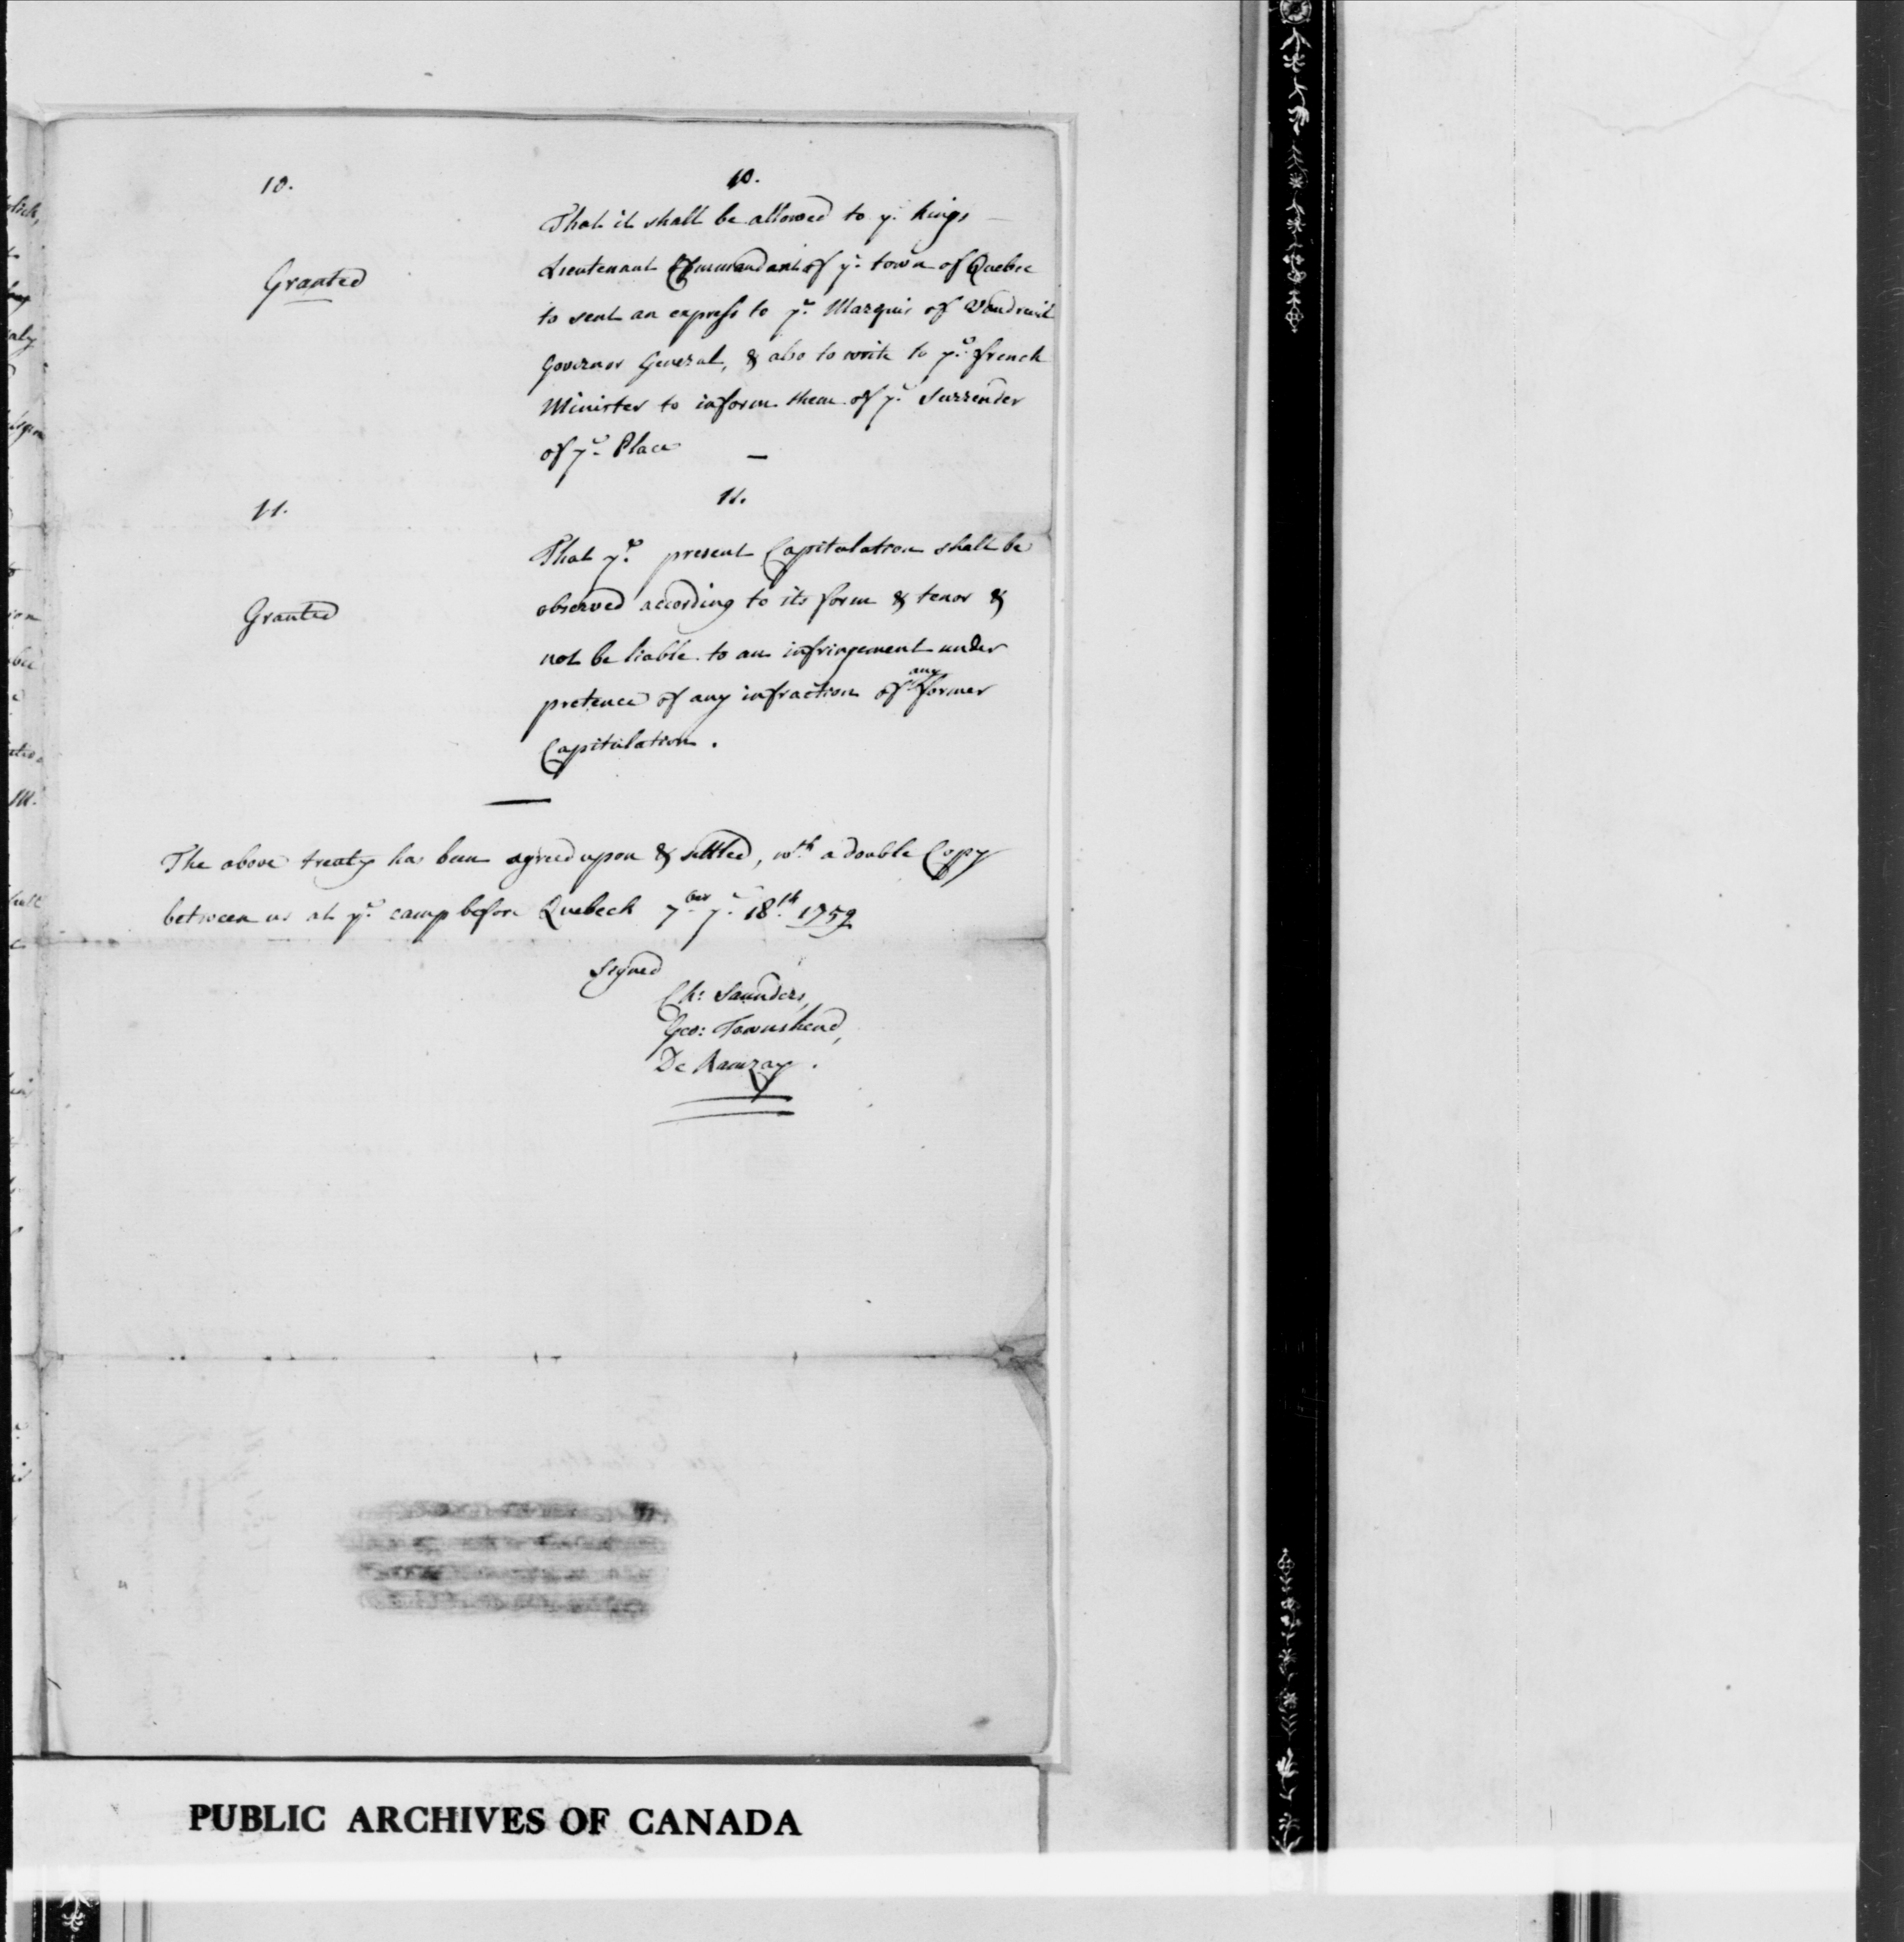 10.
10.
That it shall be allowed to yͤ Kings
Granted
Lieutenant Commandant of yͤ town of Quebec
to sent an express to yͤ Marquis of Vaudreuil
Governor General, & also to write to yͤ french
Minister to inform them of yͤ Surrender
of yͤ Place —
11.
11.
That yͤ present Capitulation shall be
Granted
observed according to its form & tenor &
not be liable to an infringement under
pretence of any infraction of any former
Capitulation.
The above treaty has been agreed upon & settled, wth a double Copy
between us at yͤ camp before Quebeck 7ber yͤ 18th 1759
Signed
Ch: Saunders,
Geo: Townshend,
De Ramzay.
PUBLIC ARCHIVES OF CANADA